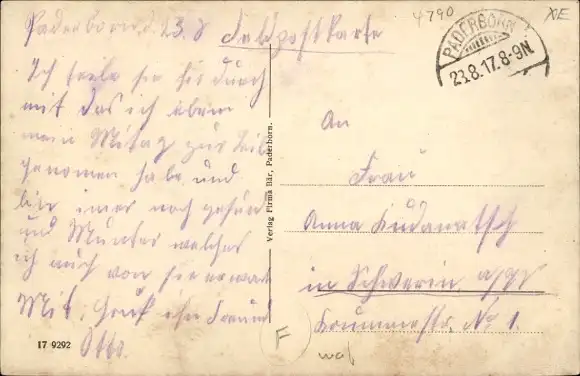 Paderborn, d. 23. 8
Feldpostkarte
4790
XE
PADERBORN
23.8.17.8-9N.
Ich teile sie hir durch
mit das ich eben
mein Mitag zur Leib
genomen habe und
bin imer noch gesund
und Munter welches
ich auch von sie erwarte
Mit Gruß ihr Freund
Otto.
Verlag Firma Bär, Paderborn.
An
Frau
Anna
in Schwerin a/W
Krummestr. No 1.
17 9292
F